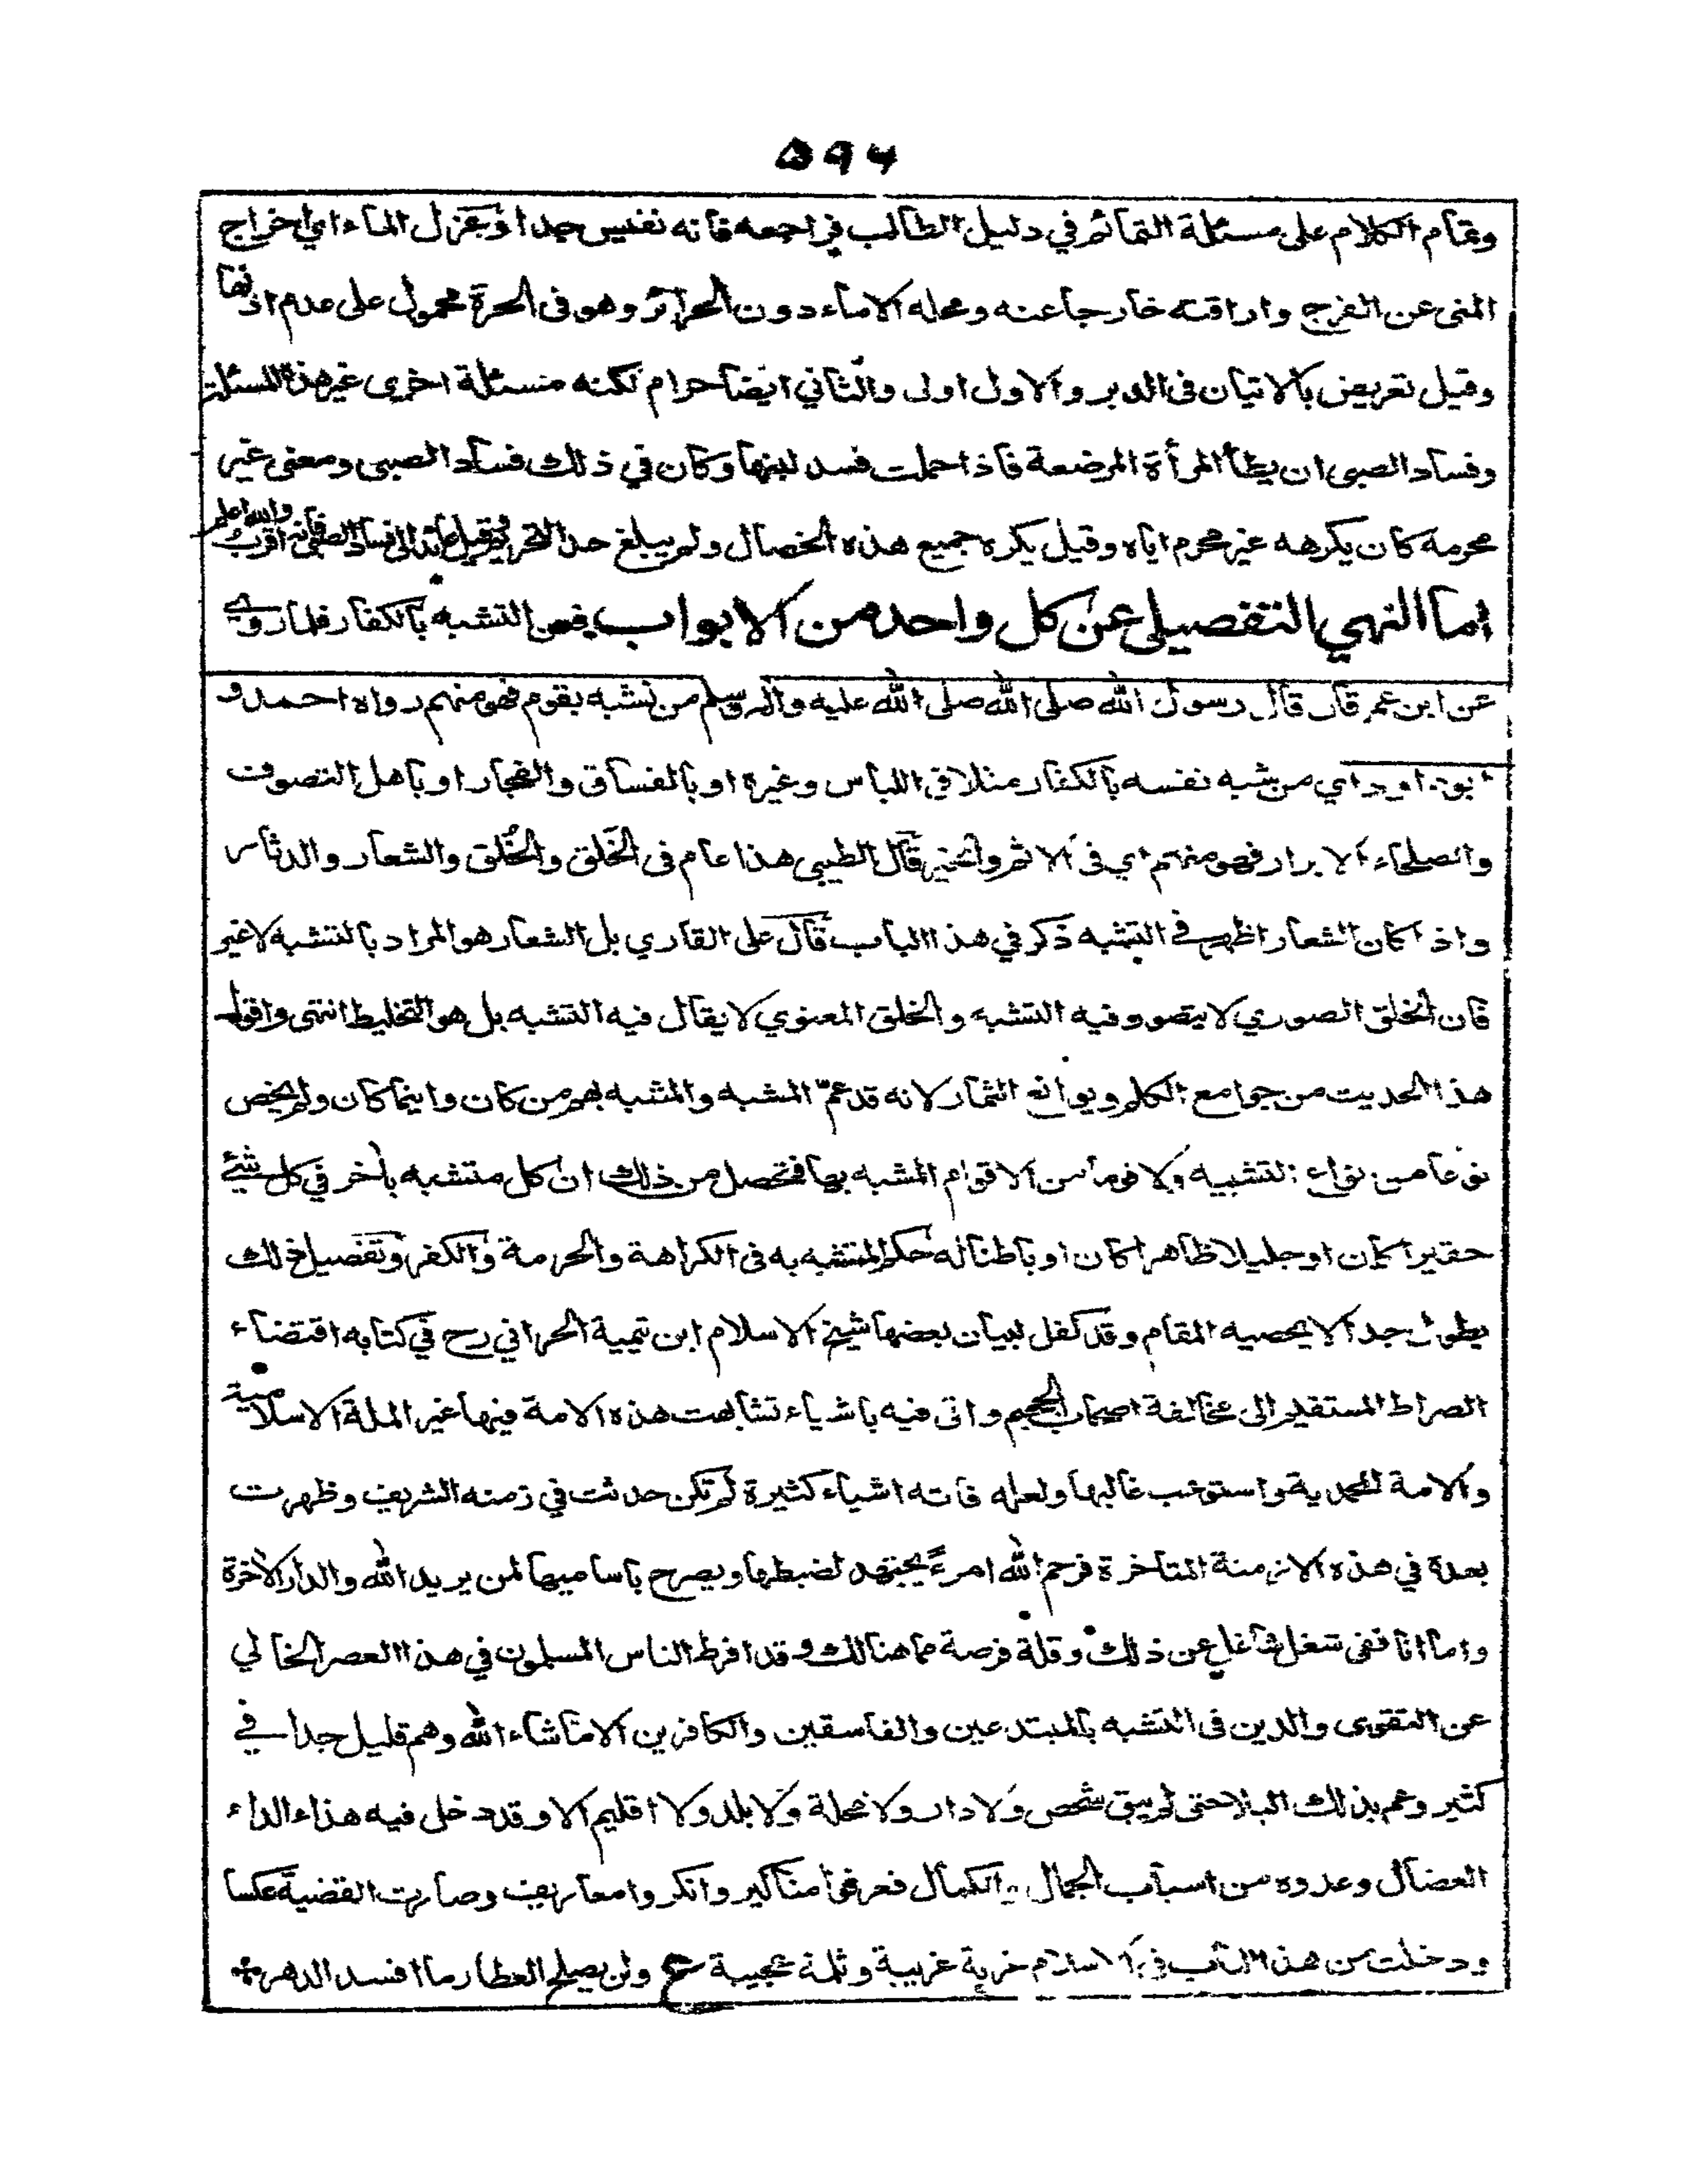 ٥٩٤
وتمام الكلام على مسئلة التمائم في دليل الطالب فراجعه فانه نفيس جدا وعزل الماء اي اخراج
المنى عن الفرج واراقته خارجا عنه ومحله الاماء دون الحرائر وهو فى الحرة محمول على عدم اذنها
وقيل تعريض بالاتيان فى الدبر والاول اولى والثاني ايضا حرام لكنه مسئلة اخرى غير هذه المسئلة
وفساد الصبى ان يطأ المرأة المرضعة فاذا حملت فسد لبنها وكان في ذلك فساد الصبى ومعنى غير
محرمه كان يكرهه غير محرم اياه وقيل يكره جميع هذه الخصال ولم يبلغ حد التحريم وقيل عائد الى فساد الصبى فانه اقرب والله اعلم
اما النهي التفصيلي عن كل واحد من الابواب فعن التشبه بالكفار فلما روي
عن ابن عمر قال قال رسول الله صلى الله صلى الله عليه واله وسلم من تشبه بقوم فهو منهم رواه احمد و
ابو داود اي من شبه نفسه بالكفار مثلا في اللباس وغيره او بالفساق والفجار او باهل التصوف
والصلحاء الابرار فهو منهم اي فى الاثم والخير قال الطيبى هذا عام فى الخلق والخلق والشعار والدثار
واذا كان الشعار اظهر في التشبه ذكر في هذا الباب قال على القاري بل الشعار هو المراد بالتشبه لا غير
فان الخلق الصوري لا يتصور فيه التشبه والخلق المعنوي لا يقال فيه التشبه بل هو التخليط انتهى واقول
هذا الحديث من جوامع الكلم ويوانع الثمار لانه قد عمّ المشبه والمشبه بهم من كان واينما كان ولم يخص
نوعا من انواع التشبيه ولا قوما من الاقوام المشبه بها فتحصل من ذلك ان كل متشبه باخر في كل شيئ
حقيرا كان او جليلا ظاهرا كان او باطنا له حكم المتشبه به فى الكراهة والحرمة والكفر وتفصيل ذلك
يطول جدا لا يحصيه المقام وقد كفل لبيان بعضها شيخ الاسلام ابن تيمية الحراني رح في كتابه اقتضاء
الصراط المستقيم الى مخالفة اصحاب الجحيم واتى فيه باشياء تشابهت هذه الامة فيها غير الملة الاسلامية
والامة المحمدية واستوعب غالبها ولعله فاته اشياء كثيرة لم تكن حدثت في زمنه الشريف وظهرت
بعدة في هذه الازمنة المتاخرة فرحم الله امرءً يجتهد لضبطها ويصرح باساميها لمن يريد الله والدار الاخرة
واما انا ففى شغل شاغل عن ذلك وقلة فرصة مما هنالك وقد افرط الناس المسلمون في هذا العصر الخالي
عن التقوى والدين فى التشبه بالمبتدعين والفاسقين والكافرين الا ما شاء الله وهم قليل جدا في
كثير وعم بذلك البلاء حتى لم يبق شخص ولا دار ولا محلة ولا بلد ولا اقليم الا وقد دخل فيه هذاء الداء
العضال وعدوه من اسباب الجمال والكمال فعرفوا مناكير وانكروا معاريف وصارت القضية عكسا
ودخلت من هذا الباب في الاسلام خربة غريبة وثلمة عجيبة ع ولن يصلح العطار ما افسد الدهر